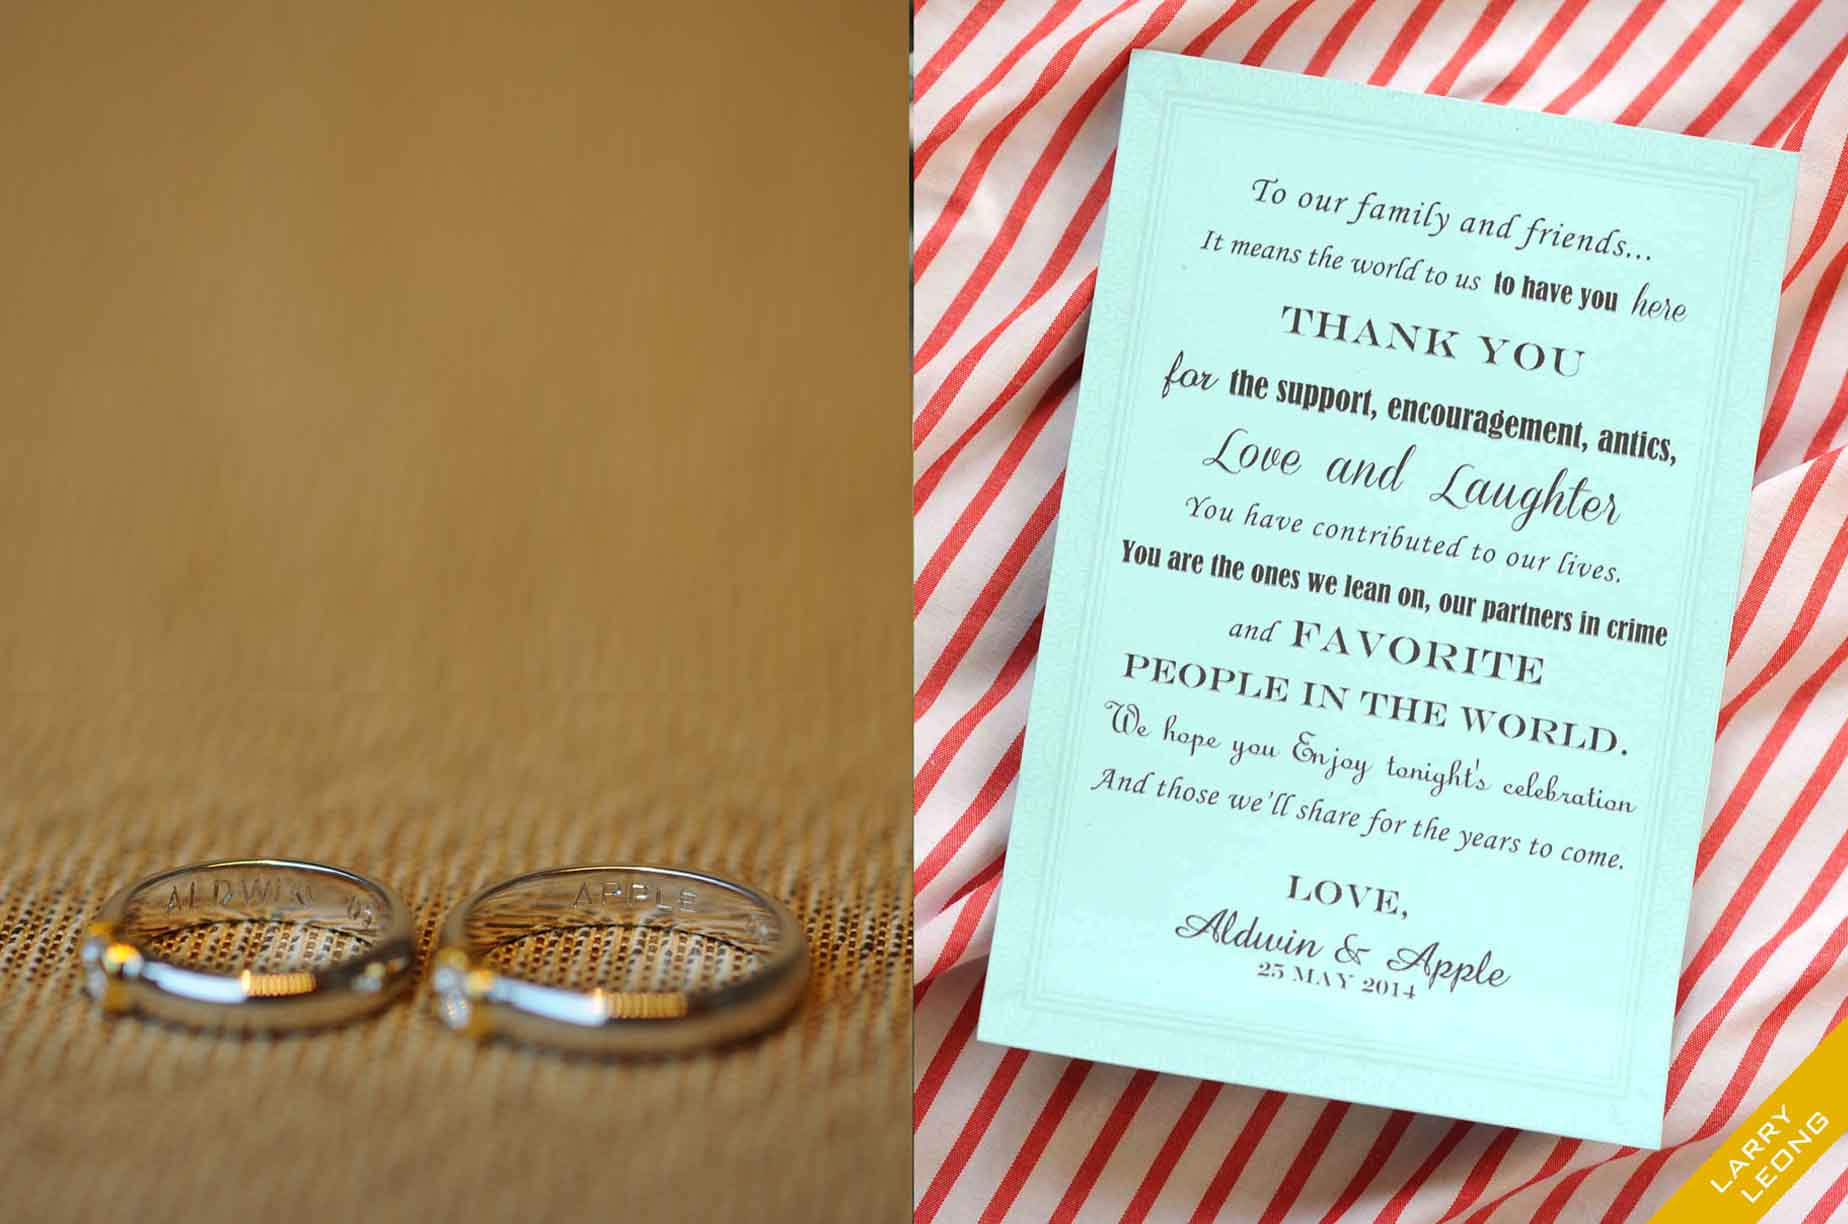 ALDWIN
APPLE
To our family and friends...
It means the world to us to have you here
THANK YOU
for the support, encouragement, antics,
Love and Laughter
You have contributed to our lives.
You are the ones we lean on, our partners in crime
and FAVORITE
PEOPLE IN THE WORLD.
We hope you Enjoy tonight's celebration
And those we'll share for the years to come.
LOVE,
Aldwin & Apple
25 MAY 2014
LARRY
LEONG